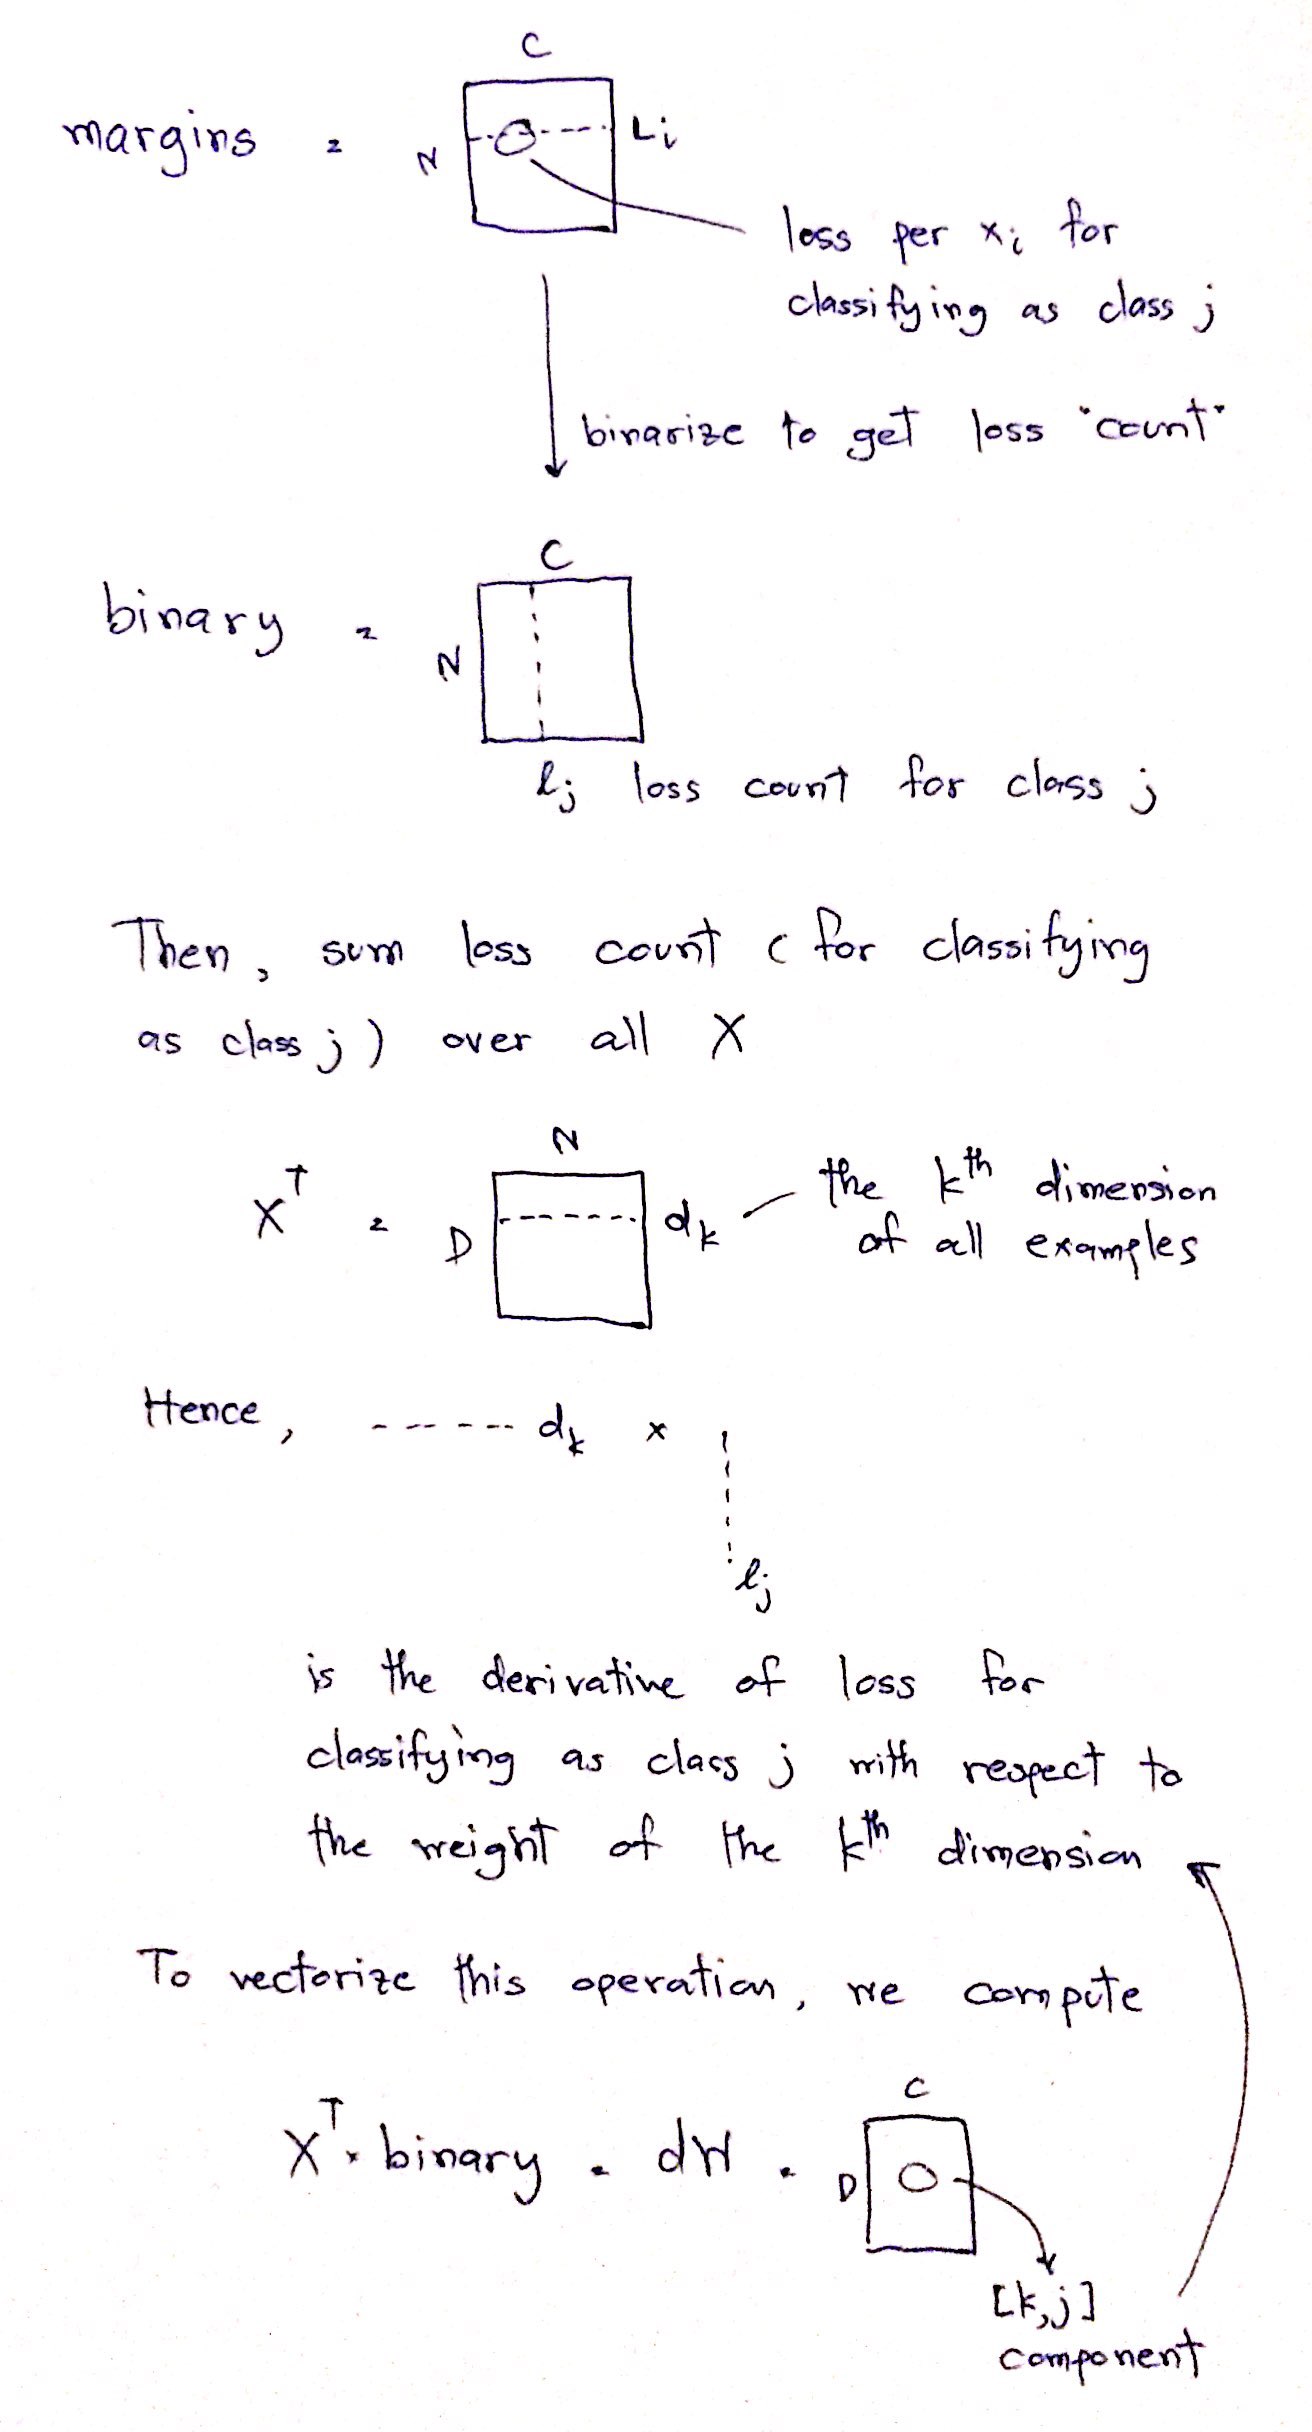 C
margins = N Li
loss per xi for
classifying as class j
binarize to get loss "count"
C
binary = N
lj loss count for class j
Then, sum loss count (for classifying
as class j) over all X
N
X^T = D dk — the k^th dimension
of all examples
Hence, ------ dk x
lj
is the derivative of loss for
classifying as class j with respect to
the weight of the k^th dimension
To vectorize this operation, we compute
C
X^T · binary = dW = D
[k,j]
component